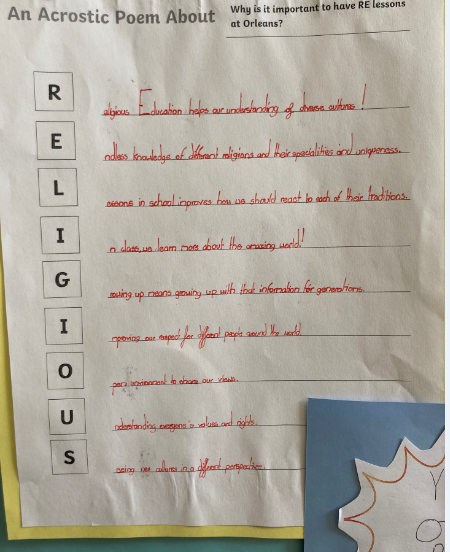 An Acrostic Poem About
Why is it important to have RE lessons
at Orleans?
R
eligious Education helps our understanding of diverse cultures!
E
ndless knowledge of different religions and their specialities and uniqueness.
L
essons in school improves how we should react to each of their traditions.
I
n class, we learn more about the amazing world!
G
rowing up means growing up with that information for generations.
I
mproving our respect for different people around the world
O
pen environment to share our views.
U
nderstanding everyone's values and rights.
S
eeing cultures in a different perspective.